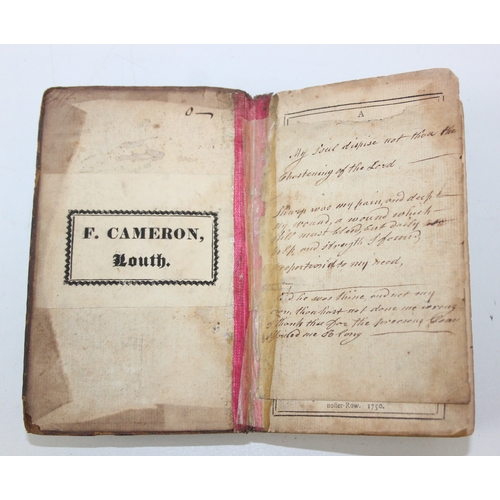 F. CAMERON,
Louth.
A
My Soul dispise not thou the
Chastening of the Lord
Sharp was my pain, and deep
my wound, a wound which
still must bleed, but daily
help and strength I found
proportion'd to my need,
he was thine, and not my
own, thou hast not done me wrong
I thank thee for the precious Loan
afforded me So long
noster-Row. 1750.